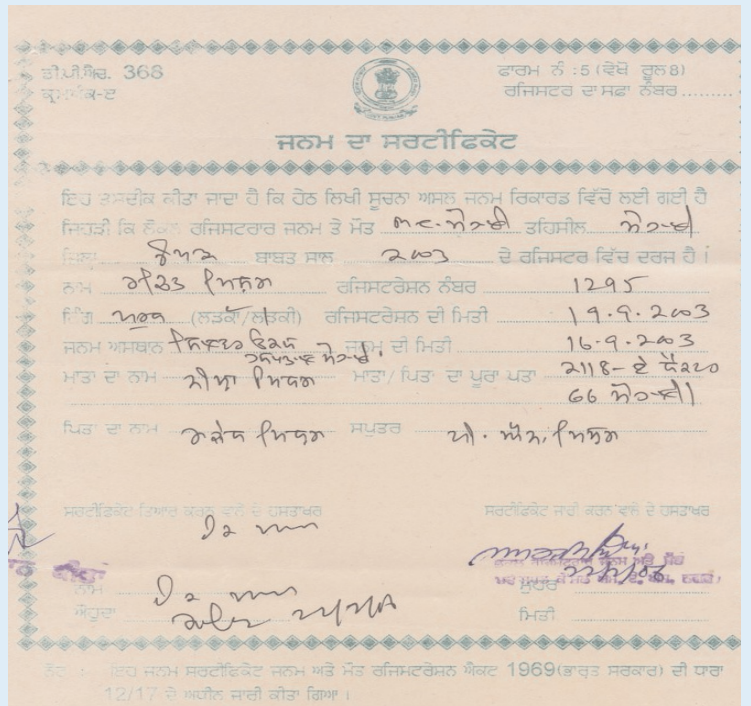 ਡੀ.ਪੀ.ਐਚ. 368
ਫਾਰਮ ਨੰ :5 (ਵੇਖੋ ਰੂਲ 8)
ਕ੍ਰਮਾਂਕ-ੲ
ਰਜਿਸਟਰ ਦਾ ਸਫਾ ਨੰਬਰ.........
ਜਨਮ ਦਾ ਸਰਟੀਫਿਕੇਟ
ਇਹ ਤਸਦੀਕ ਕੀਤਾ ਜਾਦਾ ਹੈ ਕਿ ਹੇਠ ਲਿਖੀ ਸੂਚਨਾ ਅਸਲ ਜਨਮ ਰਿਕਾਰਡ ਵਿੱਚੋ ਲਈ ਗਈ ਹੈ
ਜਿਹੜੀ ਕਿ ਲੋਕਲ ਰਜਿਸਟਰਾਰ ਜਨਮ ਤੇ ਮੌਤ ਮੋਹਾਲੀ ਤਹਿਸੀਲ ਮੋਹਾਲੀ
ਜਿਲ੍ਹਾ ਰੋਪੜ ਬਾਬਤ ਸਾਲ 2003 ਦੇ ਰਜਿਸਟਰ ਵਿੱਚ ਦਰਜ ਹੈ।
ਨਾਮ ਮਿਸ਼ਰਾ ਰਜਿਸਟਰੇਸ਼ਨ ਨੰਬਰ 1295
ਲਿੰਗ ਪੁਰਸ਼ (ਲੜਕਾ/ਲੜਕੀ) ਰਜਿਸਟਰੇਸ਼ਨ ਦੀ ਮਿਤੀ 19.9.2003
ਜਨਮ ਅਸਥਾਨ ਸਿਵਲ ਹਸਪਤਾਲ ਮੋਹਾਲੀ ਜਨਮ ਦੀ ਮਿਤੀ 16.9.2003
ਮਾਤਾ ਦਾ ਨਾਮ ਮਿਸ਼ਰਾ ਮਾਤਾ/ ਪਿਤਾ ਦਾ ਪੂਰਾ ਪਤਾ 2118-ਏ
66 ਮੋਹਾਲੀ
ਪਿਤਾ ਦਾ ਨਾਮ ਮਿਸ਼ਰਾ ਸਪੁਤਰ ਪੀ. ਐਨ. ਮਿਸ਼ਰਾ
ਸਰਟੀਫਿਕੇਟ ਤਿਆਰ ਕਰਨ ਵਾਲੇ ਦੇ ਹਸਤਾਖਰ
ਸਰਟੀਫਿਕੇਟ ਜਾਰੀ ਕਰਨ ਵਾਲੇ ਦੇ ਹਸਤਾਖਰ
ਨਾਮ
ਮੁਹਰ
ਅਹੁਦਾ
ਮਿਤੀ
ਨੋਟ : ਇਹ ਜਨਮ ਸਰਟੀਫਿਕੇਟ ਜਨਮ ਅਤੇ ਮੌਤ ਰਜਿਸਟਰੇਸ਼ਨ ਐਕਟ 1969(ਭਾਰਤ ਸਰਕਾਰ) ਦੀ ਧਾਰਾ
12/17 ਦੇ ਅਧੀਨ ਜਾਰੀ ਕੀਤਾ ਗਿਆ ।